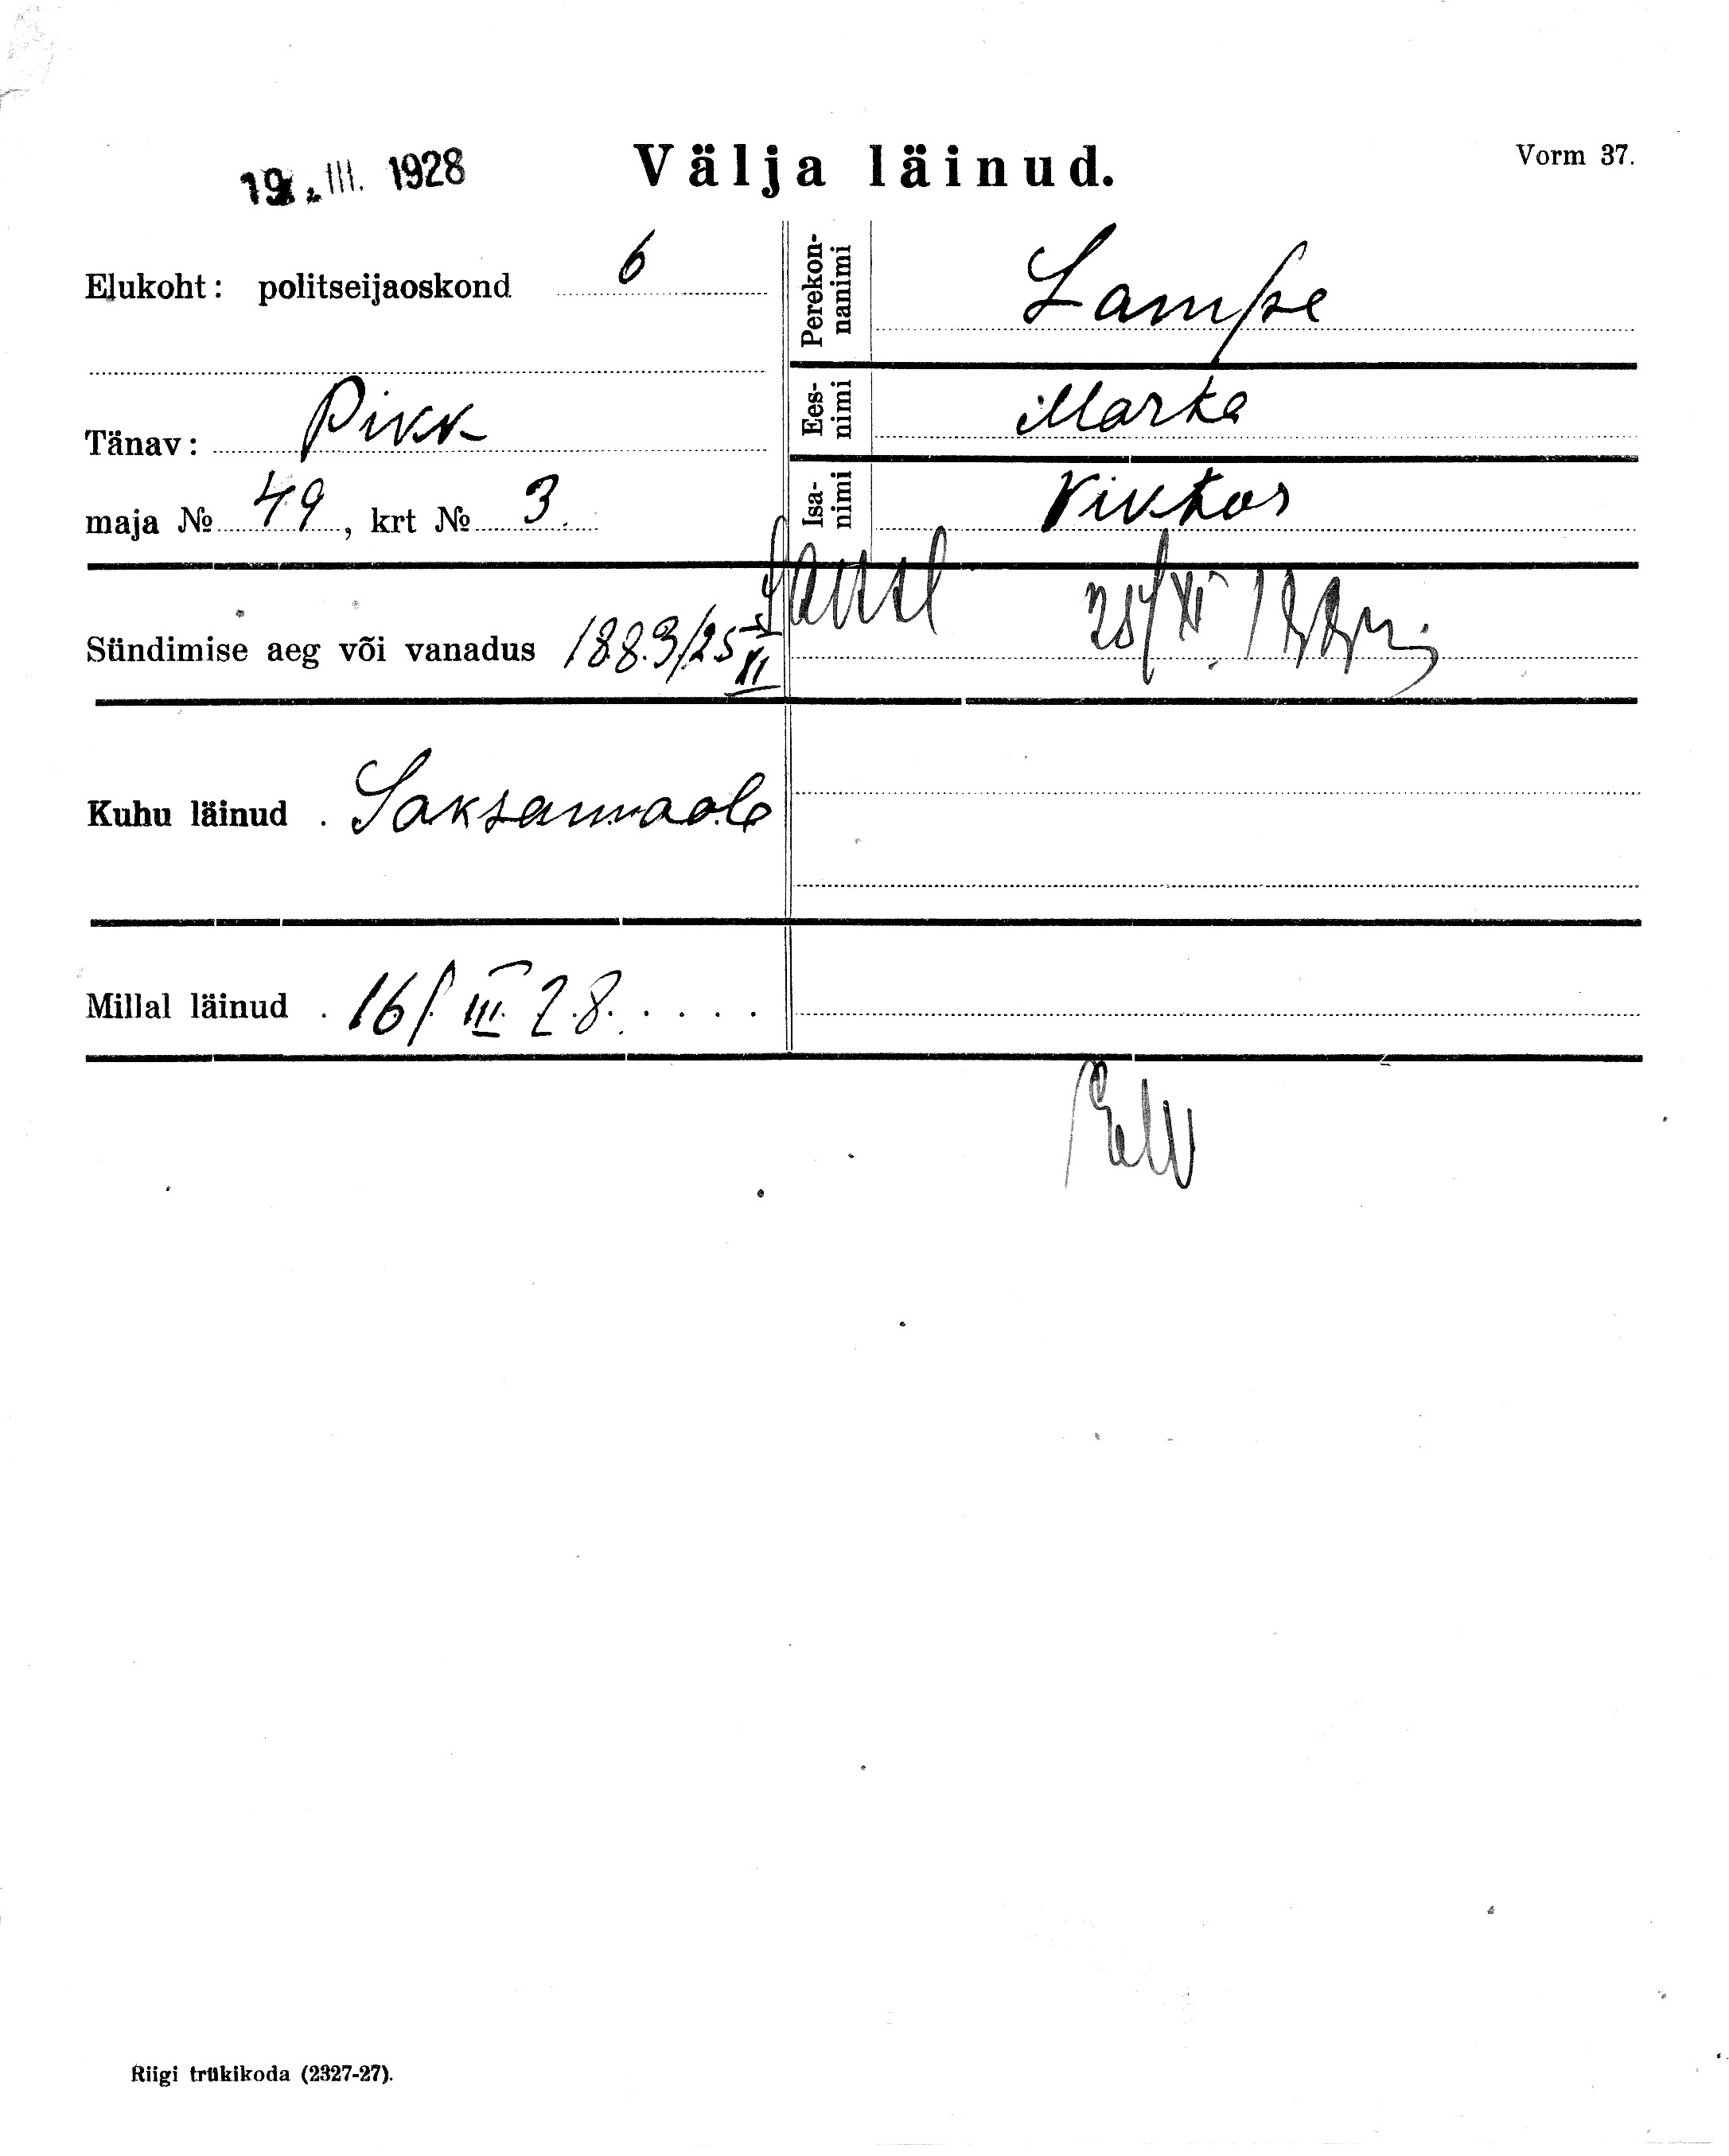 19. III. 1928
Välja läinud.
Vorm 37.
Elukoht: politseijaoskond 6
Tänav: Pikk
maja № 49, krt № 3.
Perekonnanimi Lampe
Eesnimi Marta
Isanimi Viktor
Sündimise aeg või vanadus 1883/25 XI
25/XI
Kuhu läinud . Saksamaale
Millal läinud . 16/III 28.
Riigi trükikoda (2327-27).